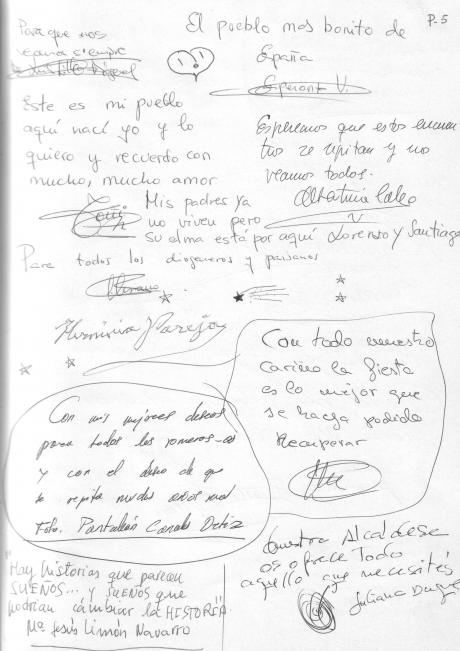 P.5
El pueblo mas bonito de
España
Esperanza V.
Para que nos
reuna siempre
Este es mi pueblo
aquí nací yo y lo
quiero y recuerdo con
mucho, mucho amor
Esperemos que estos encuen-
tros se repitan y nos
veamos todos.
Mis padres ya
no viven pero
su alma está por aquí Lorenzo y Santiago
Para todos los y paisanos
Herminia Parejo
Con todo nuestro
cariño la fiesta
es lo mejor que
se haya podido
Recuperar
Con mis mejores deseos
para todos los romeros-as
y con el deseo de que
se repita muchos años más
Fdo. Pantaleón Canales Ortiz
Nuestra Alcaldesa
os ofrece Todo
aquello que necesitéis
Juliana Duque
"Hay historias que parecen
SUEÑOS... y SUEÑOS que
podrían cambiar la HISTORIA"
Mª Jesús Limón Navarro